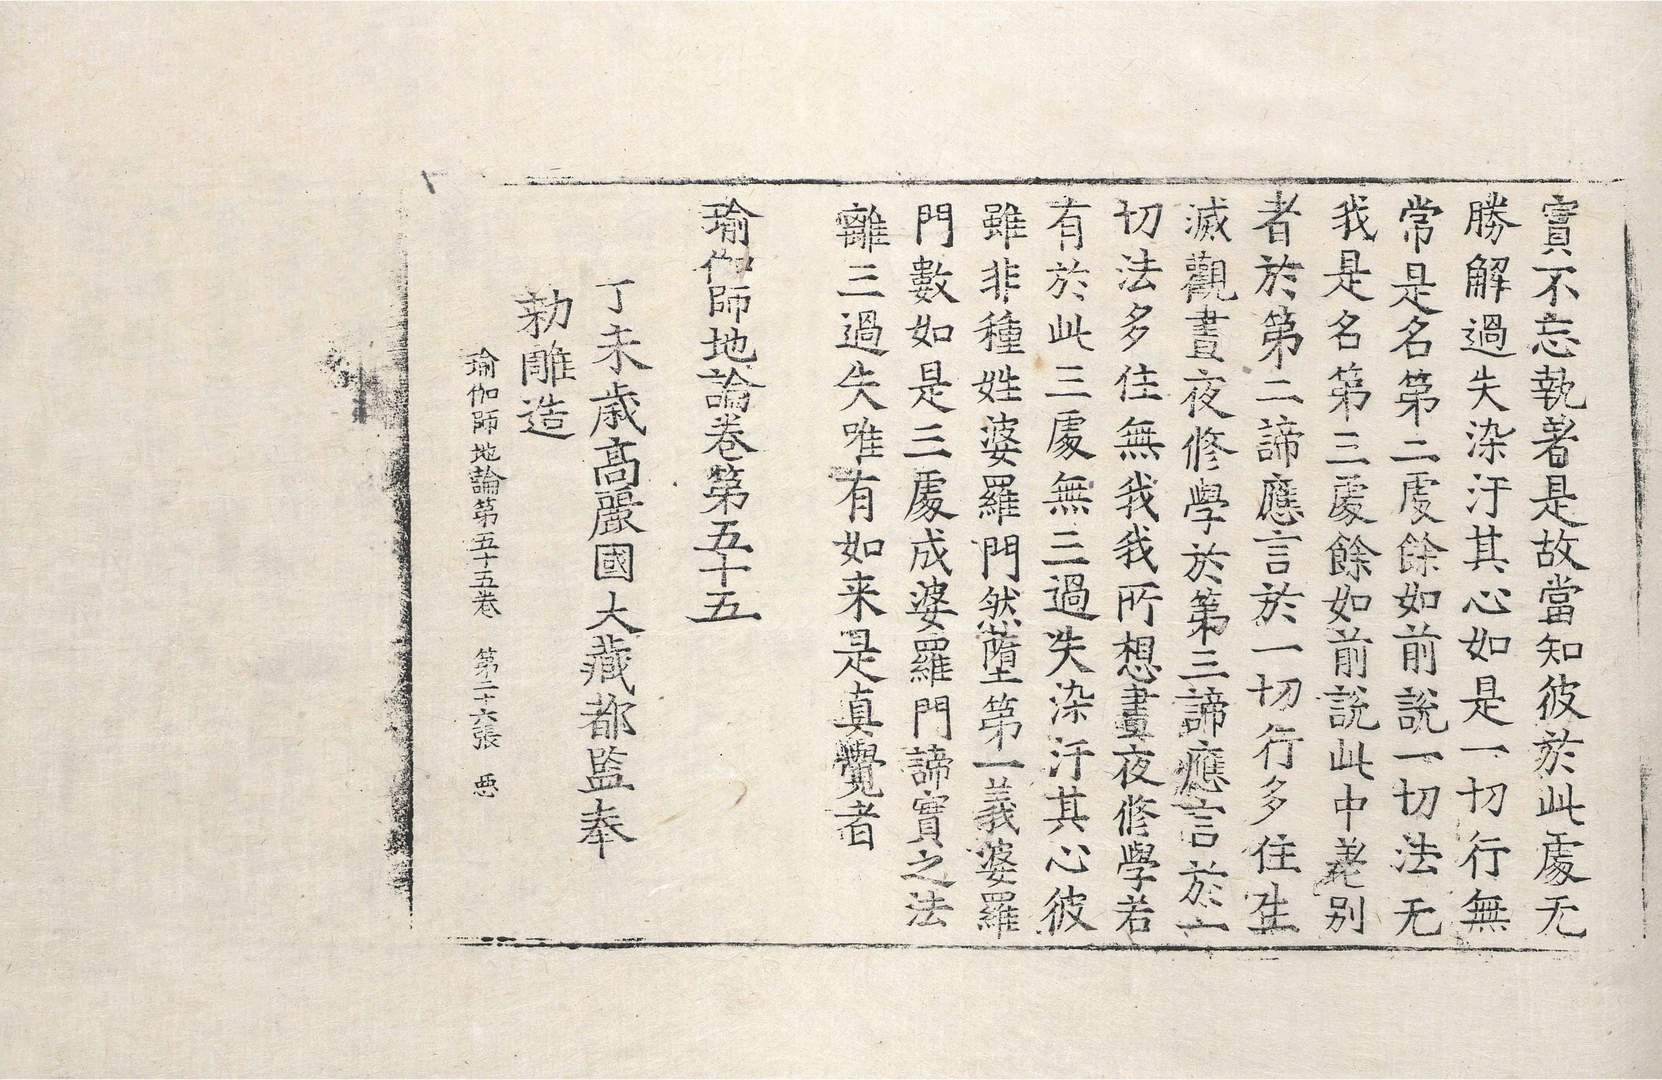 實不忘執著是故當知彼於此處无
勝解過失染汙其心如是一切行無
常是名第二處餘如前說一切法无
我是名第三處餘如前說此中差別
者於第二諦應言於一切行多住生
滅觀晝夜修學於第三諦應言於一
切法多住無我我所想晝夜修學若
有於此三處無三過失染汙其心彼
雖非種姓婆羅門然墮第一義婆羅
門數如是三處成婆羅門諦實之法
離三過失唯有如来是真覺者
瑜伽師地論卷第五十五
丁未歲高麗國大藏都監奉
勅雕造
瑜伽師地論第五十五卷 第二十六張